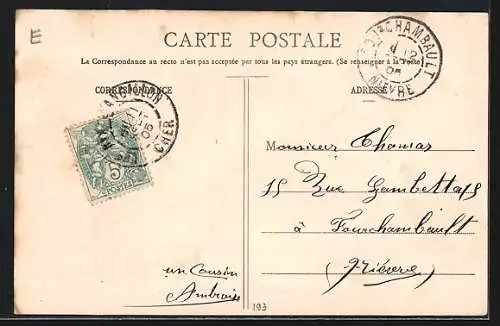 E
CARTE POSTALE
La Correspondance au recto n'est pas acceptée par tous les pays étrangers. (Se renseigner à la Poste)
CORRESPONDANCE
ADRESSE
CHAMBAULT
NIÈVRE
05
CHER
05
5
Monsieur Thomas
15 Rue Gambetta 15
à Fourchambault
(Nièvre)
un Cousin
Ambroise
193